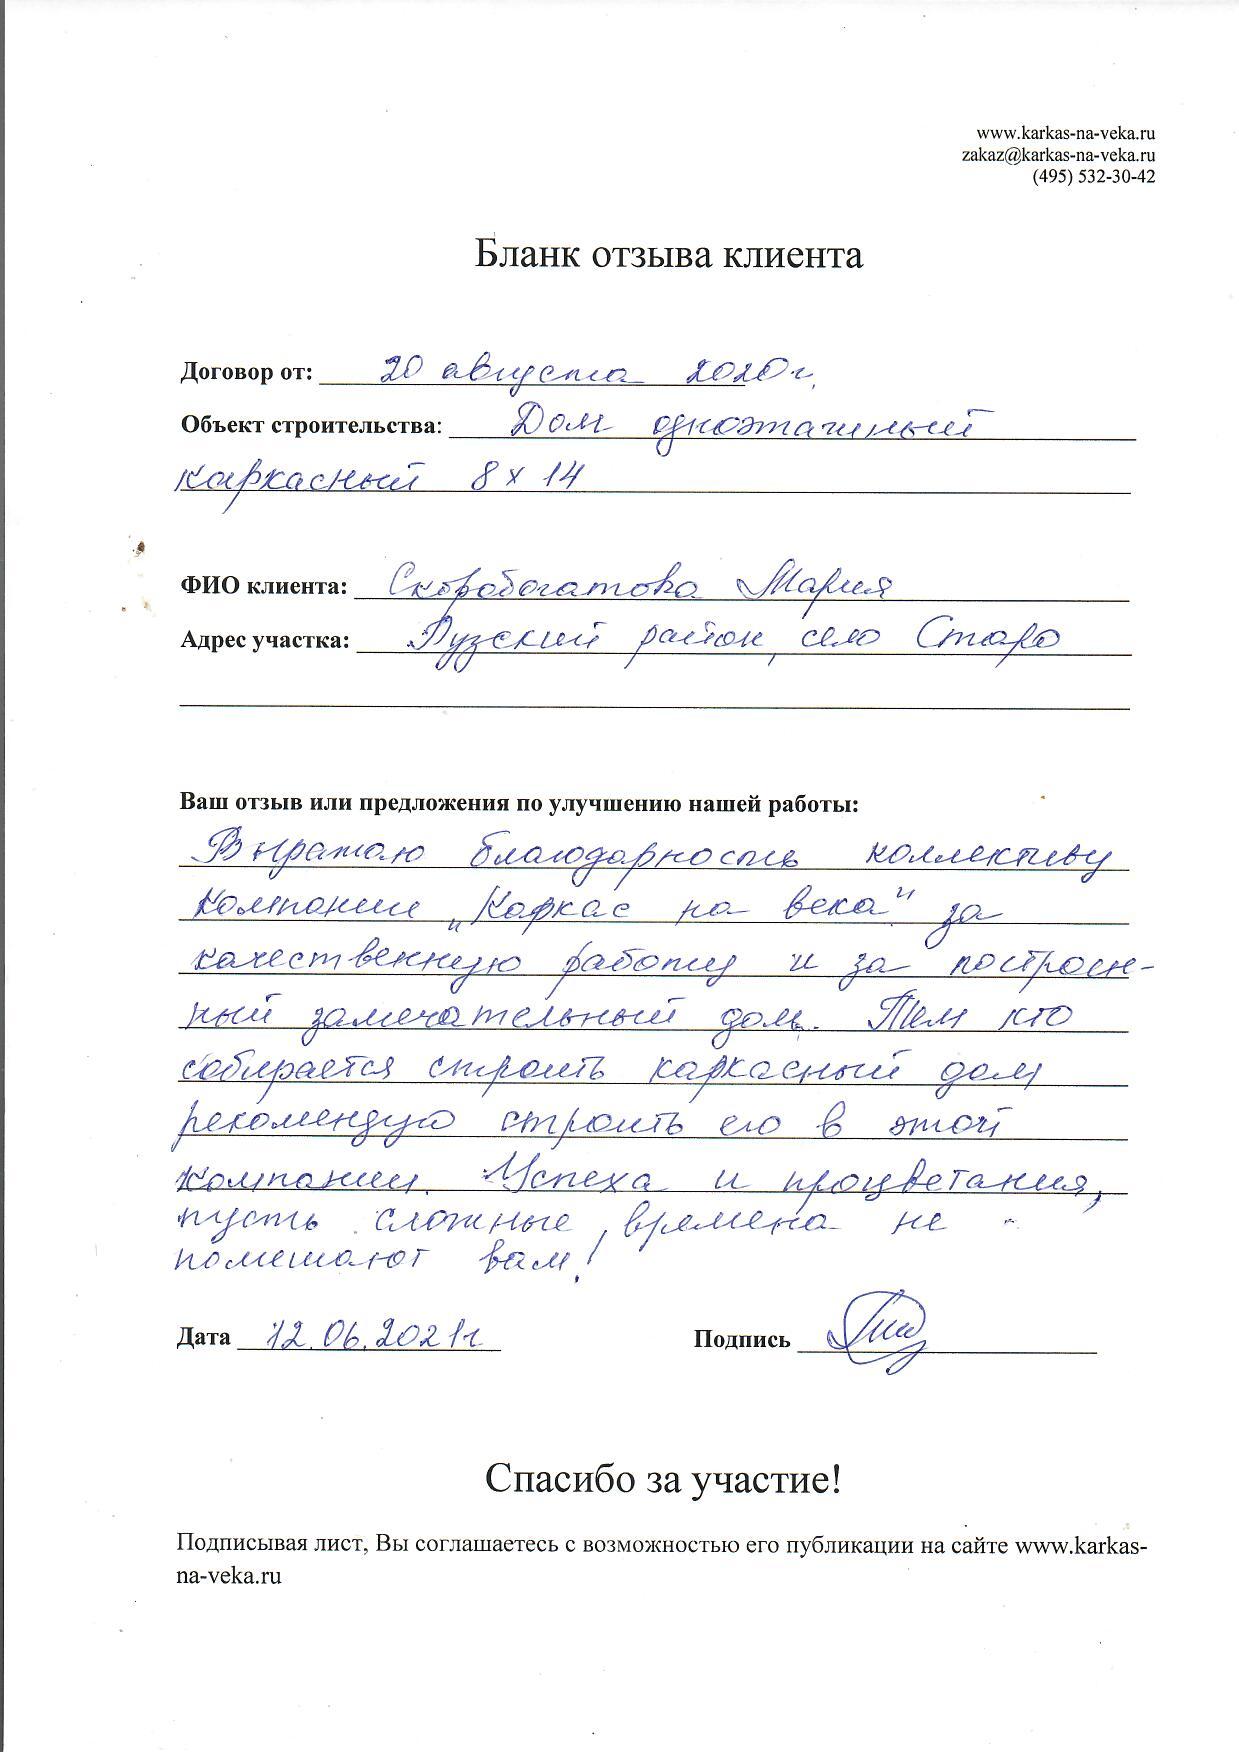 www.karkas-na-veka.ru
zakaz@karkas-na-veka.ru
(495) 532-30-42
Бланк отзыва клиента
Договор от: 20 августа 2020 г.
Объект строительства: Дом одноэтажный
каркасный 8 х 14
ФИО клиента: Скоробогатова Мария
Адрес участка: Рузский район, село Старо
Ваш отзыв или предложения по улучшению нашей работы:
Выражаю благодарность коллективу
компании „Каркас на века" за
качественную работу и за построен-
ный замечательный дом. Тем кто
собирается строить каркасный дом
рекомендую строить его в этой
компании. Успеха и процветания,
пусть сложные времена не
помешают вам!
Дата 12.06.2021г Подпись
Спасибо за участие!
Подписывая лист, Вы соглашаетесь с возможностью его публикации на сайте www.karkas-
na-veka.ru